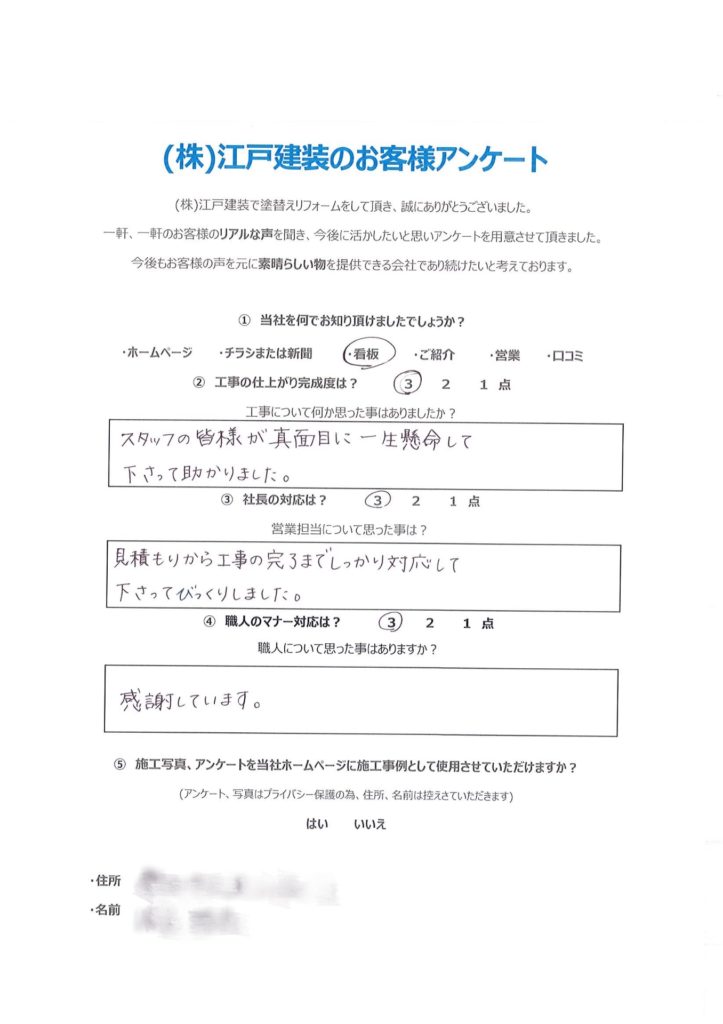 (株)江戸建装のお客様アンケート
(株)江戸建装で塗替えリフォームをして頂き、誠にありがとうございました。
一軒、一軒のお客様のリアルな声を聞き、今後に活かしたいと思いアンケートを用意させて頂きました。
今後もお客様の声を元に素晴らしい物を提供できる会社であり続けたいと考えております。
① 当社を何でお知り頂けましたでしょうか？
・ホームページ ・チラシまたは新聞 ・看板 ・ご紹介 ・営業 ・口コミ
② 工事の仕上がり完成度は？ 3 2 1 点
工事について何か思った事はありましたか？
スタッフの皆様が真面目に一生懸命して
下さって助かりました。
③ 社長の対応は？ 3 2 1 点
営業担当について思った事は？
見積もりから工事の完了までしっかり対応して
下さってびっくりしました。
④ 職人のマナー対応は？ 3 2 1 点
職人について思った事はありますか？
感謝しています。
⑤ 施工写真、アンケートを当社ホームページに施工事例として使用させていただけますか？
(アンケート、写真はプライバシー保護の為、住所、名前は控えさていただきます)
はい いいえ
・住所
・名前